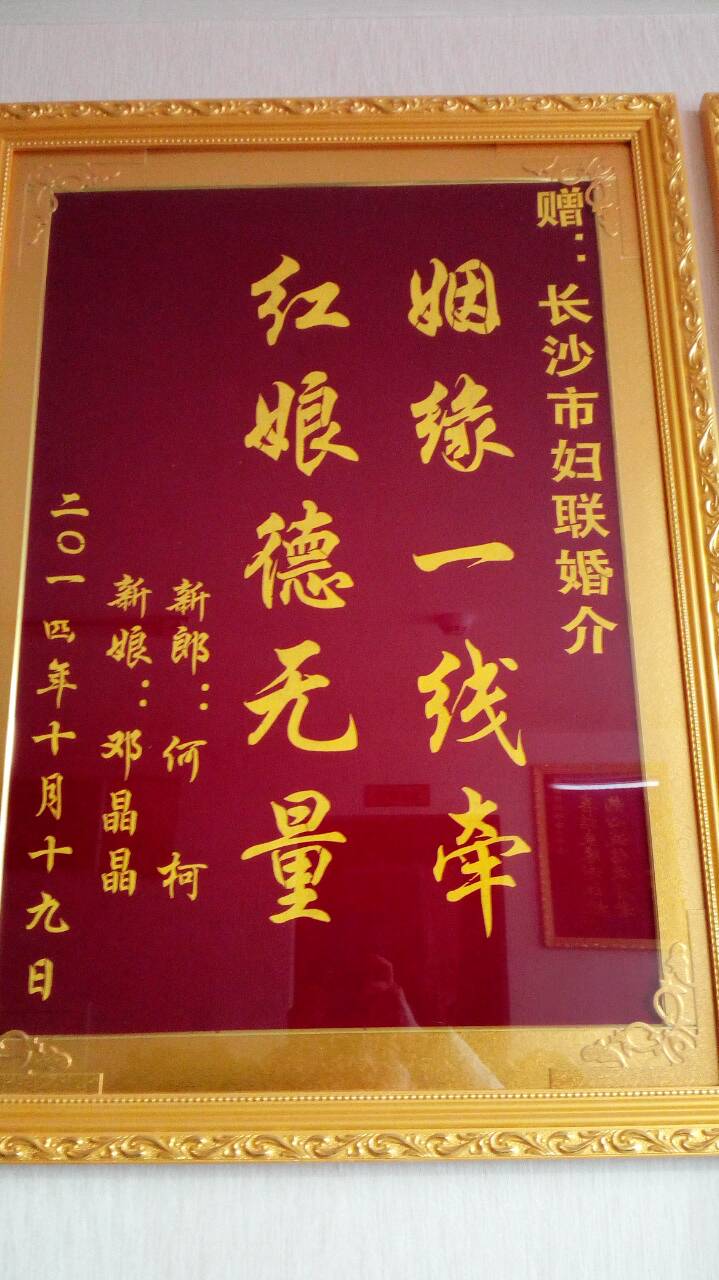 赠：长沙市妇联婚介
姻缘一线牵
红娘德无量
新郎：何柯
新娘：邓晶晶
二〇一四年十月十九日